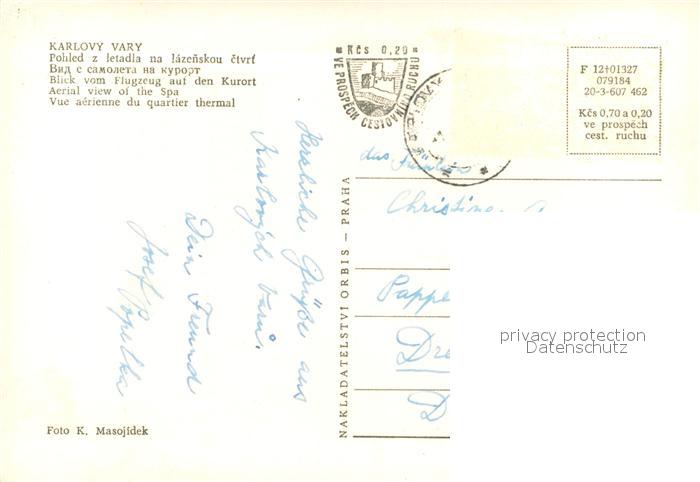 KARLOVY VARY
Pohled z letadla na lázeňskou čtvrť
Вид с самолета на курорт
Blick vom Flugzeug auf den Kurort
Aerial view of the Spa
Vue aérienne du quartier thermal
Kčs 0,20
VE PROSPĚCH CESTOVNÍHO RUCHU
F 12†01327
079184
20-3-607 462
Kčs 0,70 a 0,20
ve prospěch
cest. ruchu
Herzliche Grüße aus
Karlových Varů.
Dein Freund
Josef Popelka
NAKLADATELSTVÍ ORBIS — PRAHA
Christine
Pappe
Dre
D
privacy protection
Datenschutz
Foto K. Masojídek